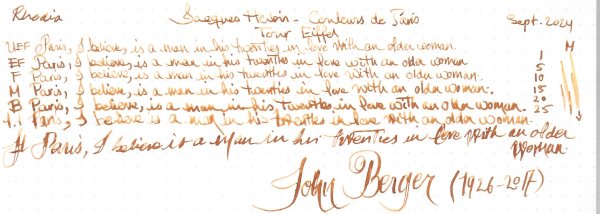 Rhodia Jacques Herbin - Couleurs de Paris Sept. 2024
Tour Eiffel
UEF Paris, I believe, is a man in his twenties in love with an older woman. M
EF Paris, I believe, is a man in his twenties in love with an older woman 1
F Paris, I believe, is a man in his twenties in love with an older woman. 5
M Paris, I believe, is a man in his twenties in love with an older woman. 10
B Paris, I believe, is a man in his twenties in love with an older woman. 15
Paris, I believe is a man in his twenties in love with an older woman. 20
25
Paris, I believe is a man in his twenties in love with an older
woman.
John Berger (1926-2017)